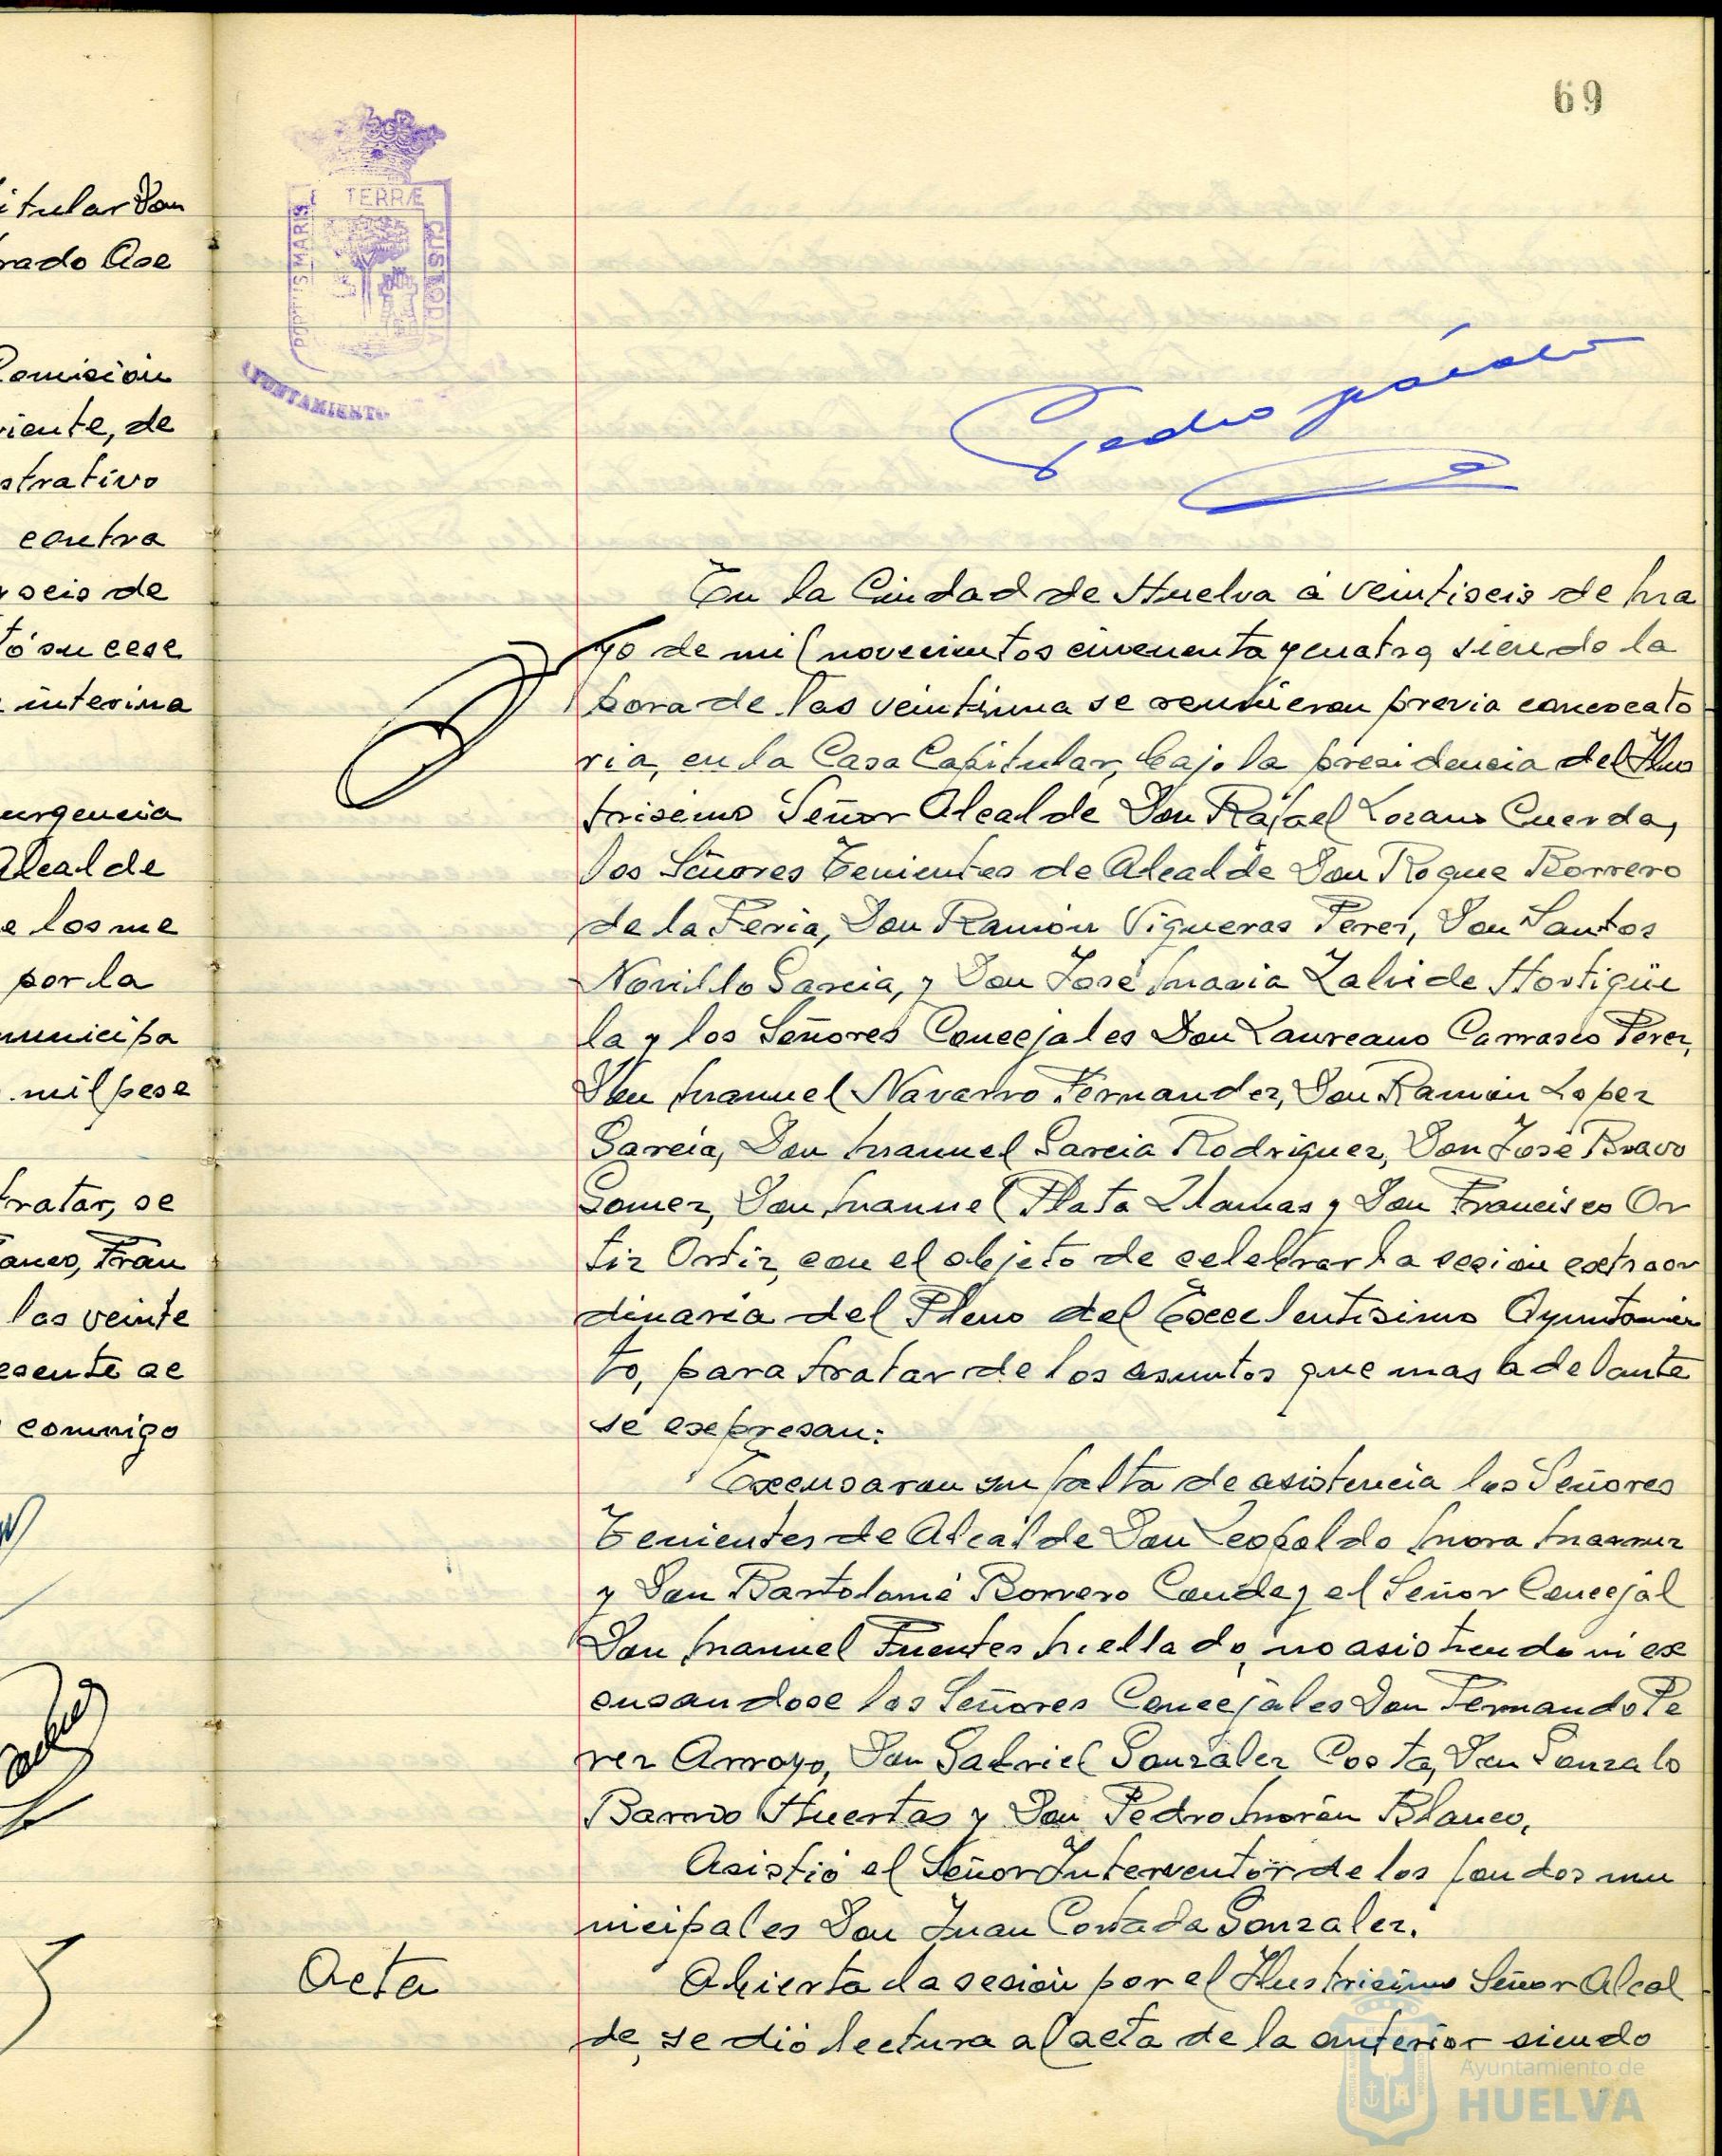 69
itular Don
rado Ase
Comisión
viente, de
strativo
contra
y seis de
tó su cese
interina
urgencia
Alcalde
e los me
por la
municipa
mil pese
tratar, se
anco, Fran
las veinte
esente ac
conmigo
PORTUS MARIS TERRÆ CUSTODIA
AYUNTAMIENTO DE
En la Ciudad de Huelva a veintiseis de Ma
yo de mil novecientos cincuenta y cuatro, siendo la
hora de las veintiuna se reunieron previa convocato
ria, en la Casa Capitular, bajo la presidencia del Ilus
trisimo Señor Alcalde Don Rafael Lozano Cuerda,
los Señores Tenientes de Alcalde Don Roque Borrero
de la Feria, Don Ramón Vigueras Perez, Don Santos
Novillo Garcia, y Don José Maria Zalvide Hortigüe
la y los Señores Concejales Don Laureano Carrasco Perez,
Don Manuel Navarro Fernandez, Don Ramón Lopez
Garcia, Don Manuel Garcia Rodriguez, Don José Bravo
Gomez, Don Manuel Plata Llamas y Don Francisco Or
tiz Ortiz, con el objeto de celebrar la sesión extraor
dinaria del Pleno del Excelentisimo Ayuntamien
to, para tratar de los asuntos que mas adelante
se expresan:
Excusaron su falta de asistencia los Señores
Tenientes de Alcalde Don Leopoldo Mora
y Don Bartolomé Borrero Conde y el Señor Concejal
Don Manuel Fuentes Mellado, no asistiendo ni ex
cusandose los Señores Concejales Don Fernando Pe
rez Arroyo, Don Gabriel Gonzalez Costa, Don Gonzalo
Barrio Huertas y Don Pedro Morón Blanco.
Asistió el Señor Interventor de los fondos mu
nicipales Don Juan Cortada Gonzalez.
Acta
Abierta la sesión por el Ilustrisimo Señor Alcal
de, se dió lectura al acta de la anterior siendo
Ayuntamiento de
HUELVA